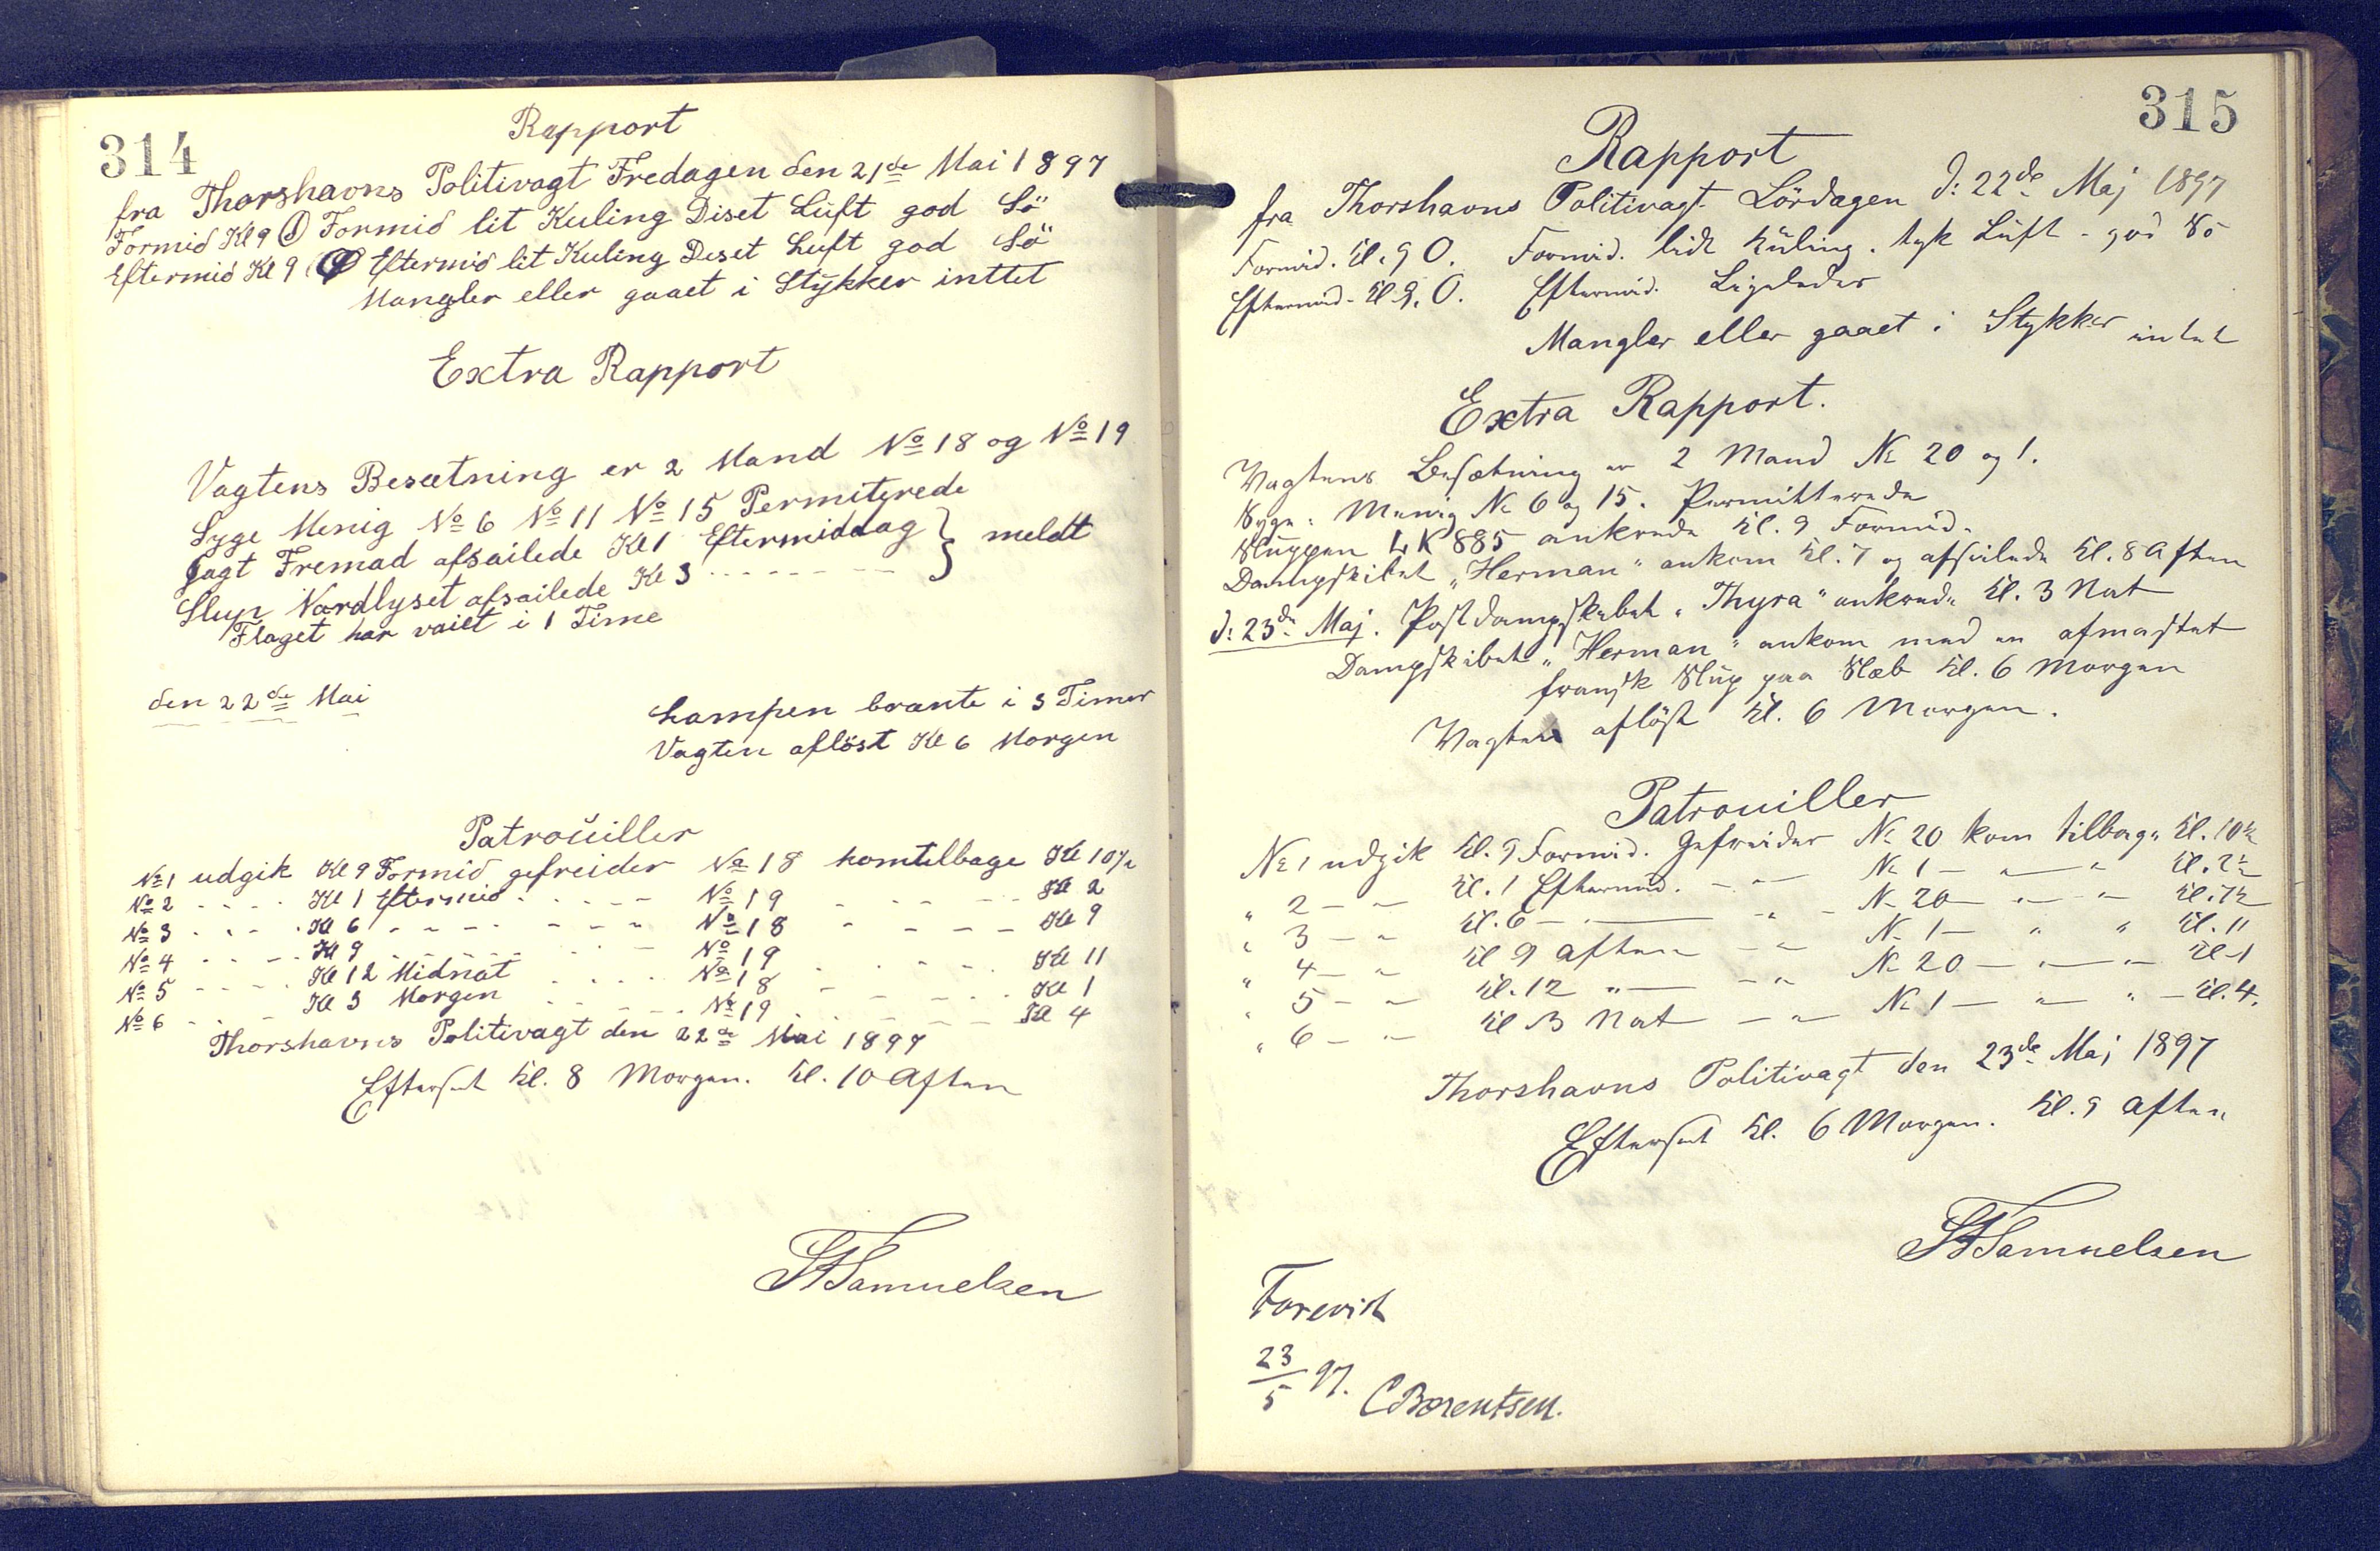 314
Rapport
fra Thorshavns Politivagt Fredagen den 21de Mai 1897
Formid Kl 9 Formid lit Kuling Diset Luft god Sö
Eftermid Kl 9 Eftermid lit Kuling Diset Luft god Sö
Mangler eller gaaet i Stykker inttet
Extra Rapport
Vagtens Besætning er 2 Mand No 18 og No 19
Syge Menig No 6 No 11 No 15 Permiterede
Jagt Fremad afsailede Kl 1 Eftermiddag } meldt
Slup Nordlyset afsailede Kl 3 - - - - - - -
Flaget har vaiet i 1 Time
den 22de Mai
Lampen brænte i 3 Timer
Vagten aflöst Kl 6 Morgen
Patrouiller
No 1 udgik Kl 9 Formid gefreider No 18 komtilbage Kl 10½
No 2 - - - - Kl 1 Eftermid - - - - No 19 - - - - Kl 2
No 3 - - - - Kl 6 - - - - - - No 18 - - - - Kl 9
No 4 - - - - Kl 9 - - - - - - No 19 - - - - Kl 11
No 5 - - - - Kl 12 Midnat - - - - No 18 - - - - Kl 1
No 6 - - - - Kl 3 Morgen - - - - No 19 - - - - Kl 4
Thorshavns Politivagt den 22de Mai 1897
Efterset Kl. 8 Morgen. Kl. 10 Aften
Samuelsen
315
Rapport
fra Thorshavns Politivagt Lördagen d: 22de Maj 1897
Formid. Kl. 9 O. Formid. lidt Küling. tyk Lüft - god Sö
Eftermid. Kl. 9. O. Eftermid. Ligeledes
Mangler eller gaaet i Stykker intet
Extra Rapport.
Vagtens Besætning er 2 Mand No 20 og 1.
Syge: Menig No 6 og 15. Permitterede
Sluppen LK 885 ankrede Kl. 9 Formid.
Dampskibet "Herman" ankom Kl. 7 og afseilede Kl. 8 Aften
d: 23de Maj. Postdampskibet "Thyra" ankrede Kl. 3 Nat
Dampskibet "Herman" ankom med en afmastet
fransk Slup paa Slæb Kl. 6 Morgen
Vagten aflöst Kl. 6 Morgen.
Patrouiller
No 1 udgik Kl. 9 Formid. Gefreider No 20 kom tilbage Kl. 10½
" 2 - " Kl. 1 Eftermid. - " - No 1 - " - " Kl. 2½
" 3 - " Kl. 6 - " - - " - No 20 - " - " Kl. 7½
" 4 - " Kl 9 Aften - " - No 1 - " " Kl. 11
" 5 - " Kl. 12 " - - " - No 20 - " - " Kl 1
" 6 - " Kl 3 Nat - " - No 1 - " - " - Kl. 4.
Thorshavns Politivagt den 23de Maj 1897
Efterset Kl. 6 Morgen. Kl. 9 Aften
Samuelsen
Forevist
23/5 97. C Bærentsen.